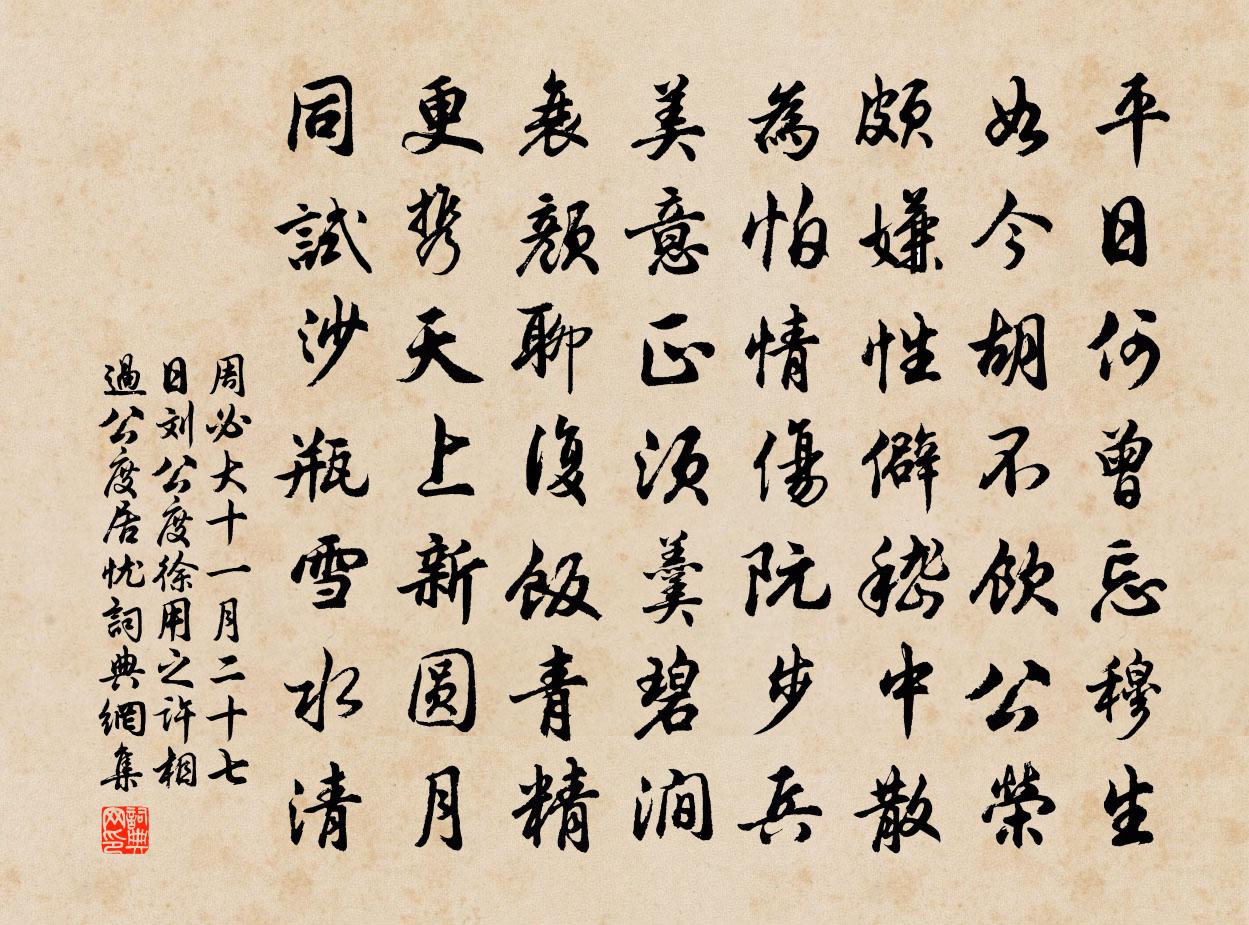 平日何曾忘穆生
如今胡不飲公榮
頗嫌性僻嵇中散
為怕情傷阮步兵
美意正須羹碧澗
衰顏聊復飯青精
更携天上新圓月
同試沙瓶雪水清
周必大十一月二十七
日刘公度徐用之許相
過公度居忧詞典網集
詞典网印